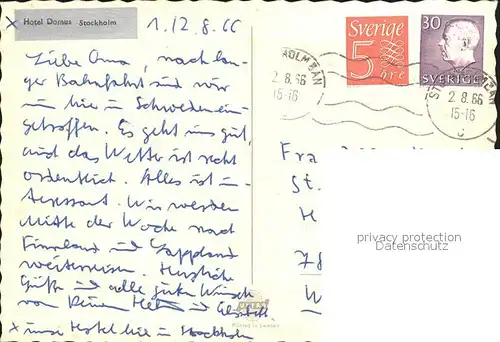 x Hotel Domus Stockholm
1./2. 8. 66
Liebe Oma, nach lan-
ger Bahnfahrt sind wir
nun hier in Schweden ein-
getroffen. Es geht uns gut,
und das Wetter ist recht
ordentlich. Alles ist in-
teressant. Wir werden
Mitte der Woche nach
Finnland und Lappland
weiterreisen. Herzliche
Grüße und alle guten Wünsche
von Deinem und
x unser Hotel hier in Stockholm
Sverige
5
öre
30
SVERIGE
STOCKHOLM BAN
2. 8. 66
15-16
2. 8. 66
15-16
Fra
St.
H
78
W
privacy protection
Datenschutz
Printed in Sweden